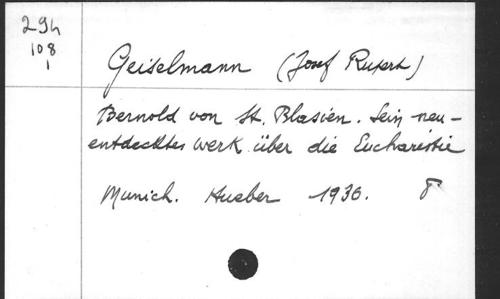 294
108
1
Geiselmann (Josef Rupert)
Bernold von St. Blasien. Sein neu-
entdecktes Werk über die Eucharistie
Munich. Hueber 1936. 8